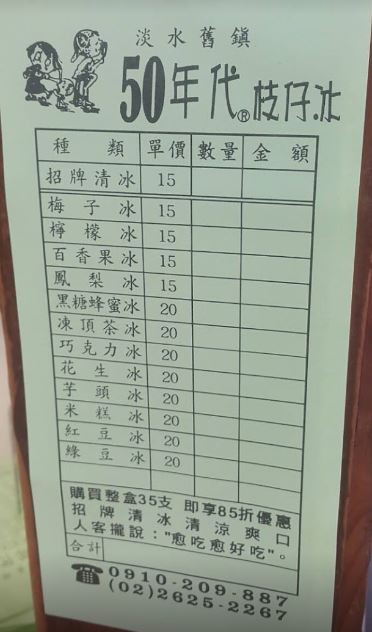 淡水舊鎮
50年代®枝仔冰
種類 單價 數量 金額
招牌清冰 15
梅子冰 15
檸檬冰 15
百香果冰 15
鳳梨冰 15
黑糖蜂蜜冰 20
凍頂茶冰 20
巧克力冰 20
花生冰 20
芋頭冰 20
米糕冰 20
紅豆冰 20
綠豆冰 20
購買整盒35支 即享85折優惠
招牌清冰清涼爽口
人客攏說："愈吃愈好吃"。
合計
☎0910-209-887
(02)2625-2267